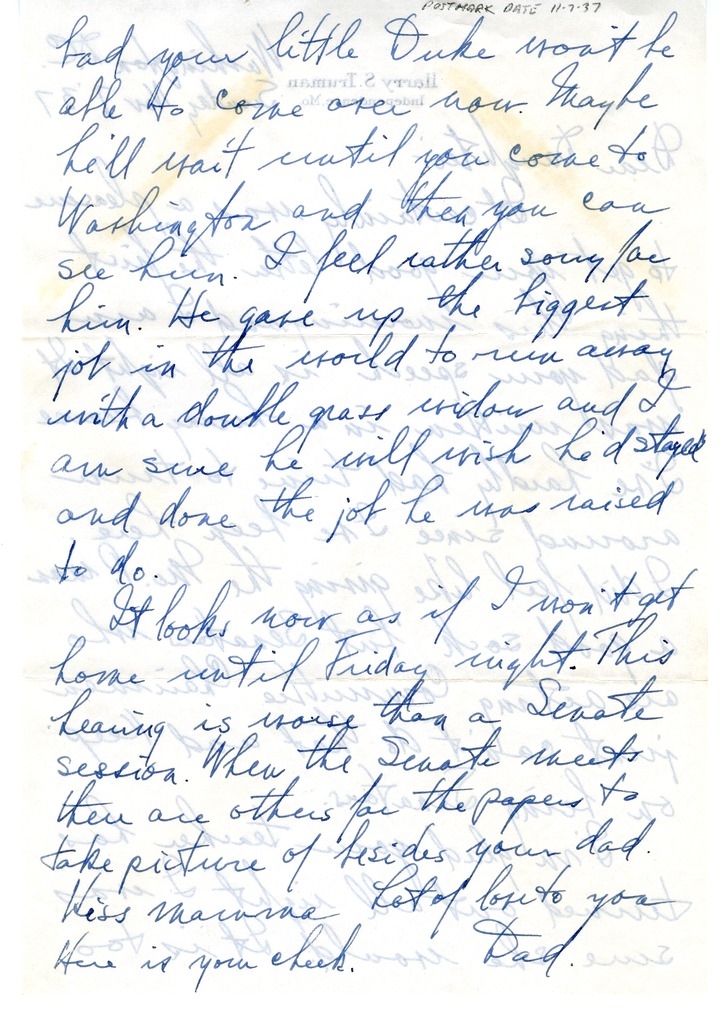 POSTMARK DATE 11-7-37
bad your little Duke won't be
able to come over now. Maybe
he'll wait until you come to
Washington and then you can
see him. I feel rather sorry for
him. He gave up the biggest
job in the world to run away
with a double grass widow and I
am sure he will wish he'd stayed
and done the job he was raised
to do.
It looks now as if I won't get
home until Friday night. This
hearing is worse than a Senate
session. When the Senate meets
there are others for the papers to
take picture of besides your dad.
Kiss mamma Lot of love to you
Here is your check. Dad.
Harry S. Truman
Independence, Mo.